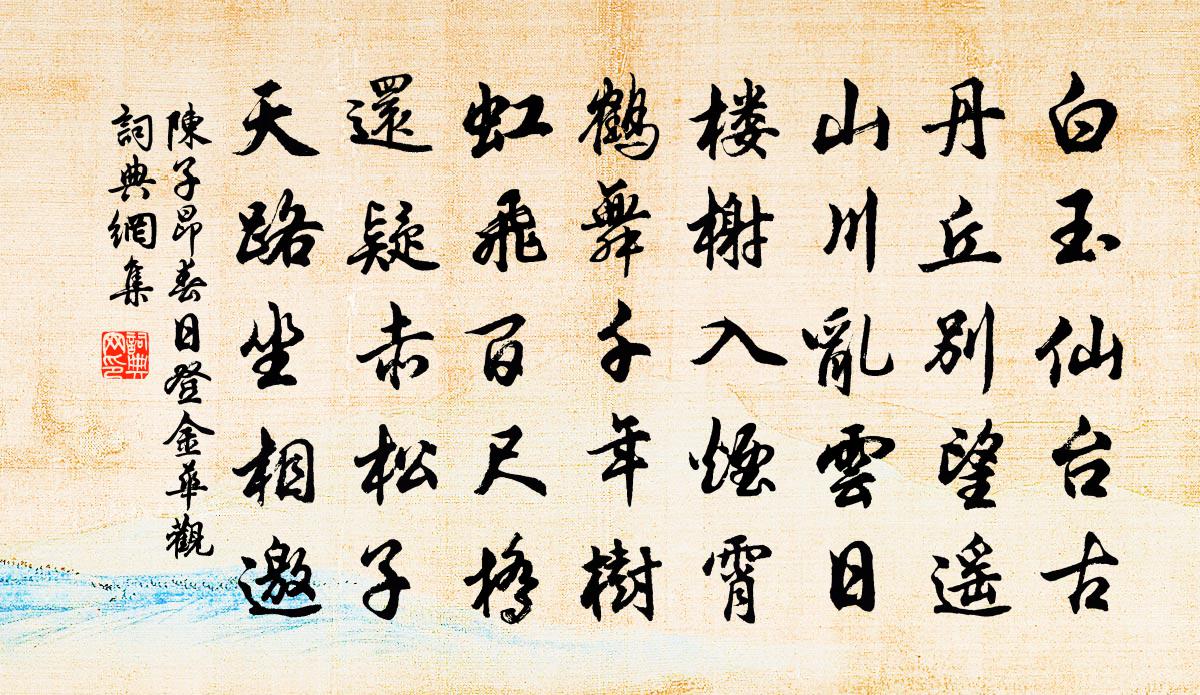 白玉仙台古
丹丘別望遥
山川亂雲日
楼榭入煙霄
鶴舞千年樹
虹飛百尺橋
還疑赤松子
天路坐相邀
陳子昂春日登金華觀
詞典網集
詞典